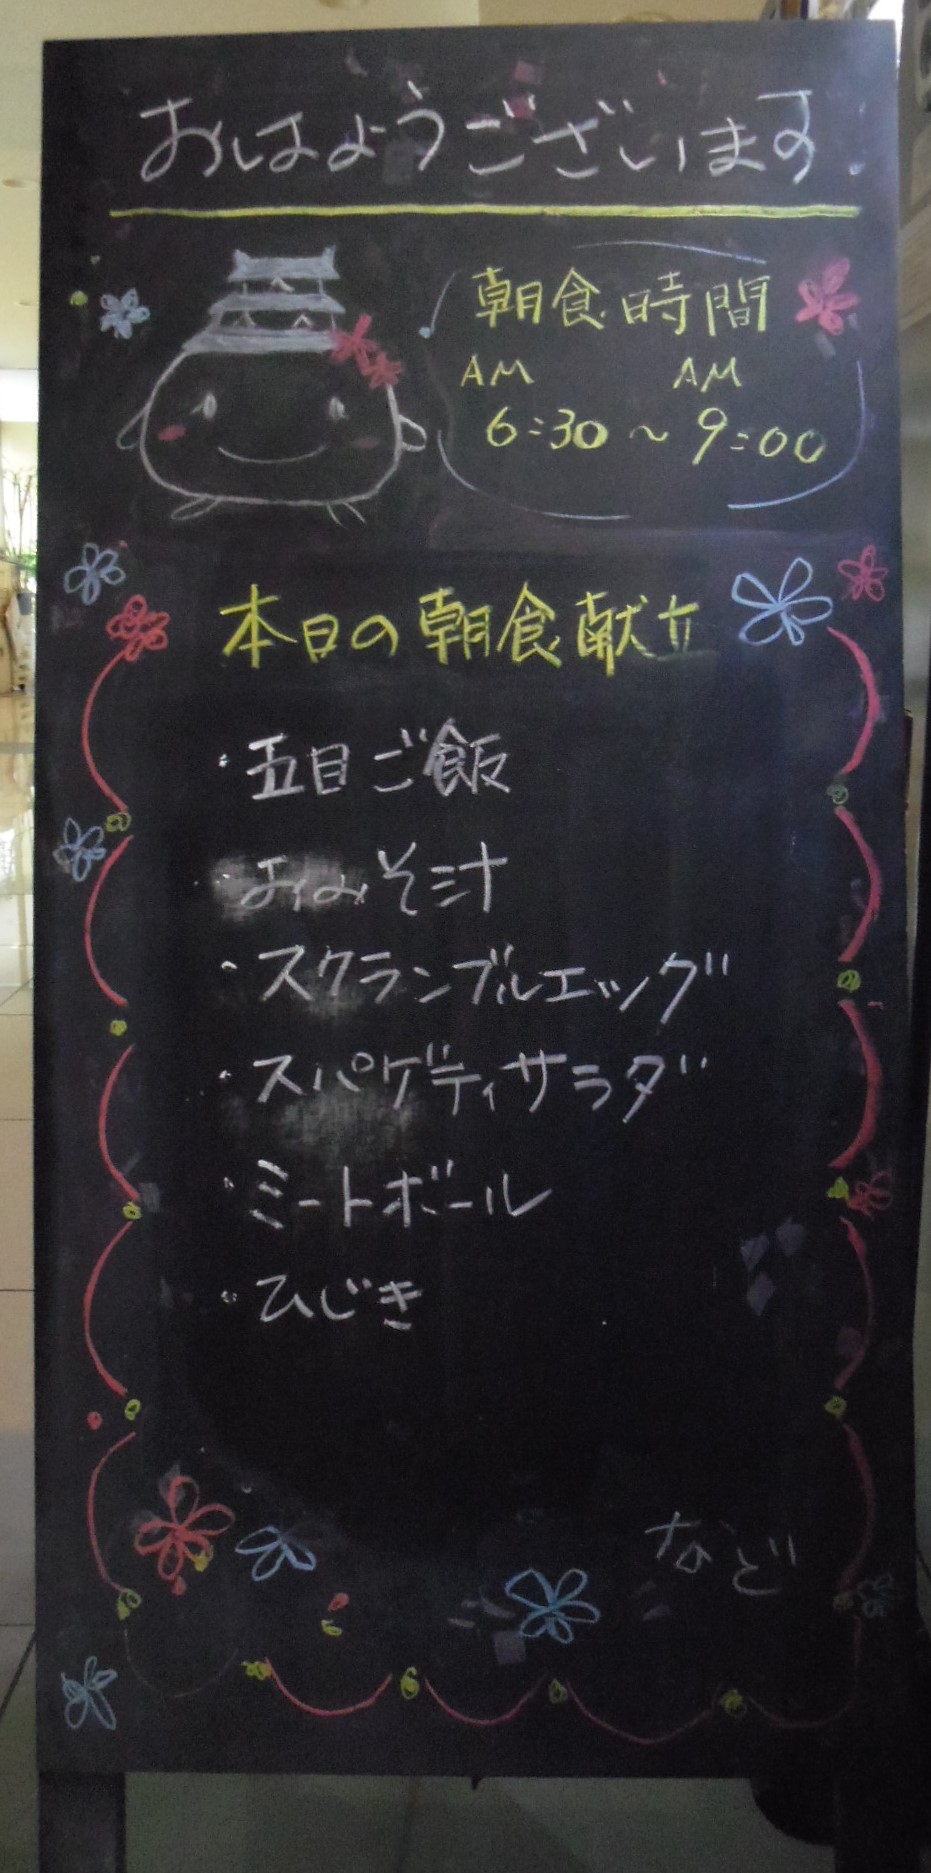 おはようございます!
朝食時間
AM AM
6:30～9:00
本日の朝食献立
・五目ご飯
・おみそ汁
・スクランブルエッグ
・スパゲティサラダ
・ミートボール
・ひじき
など